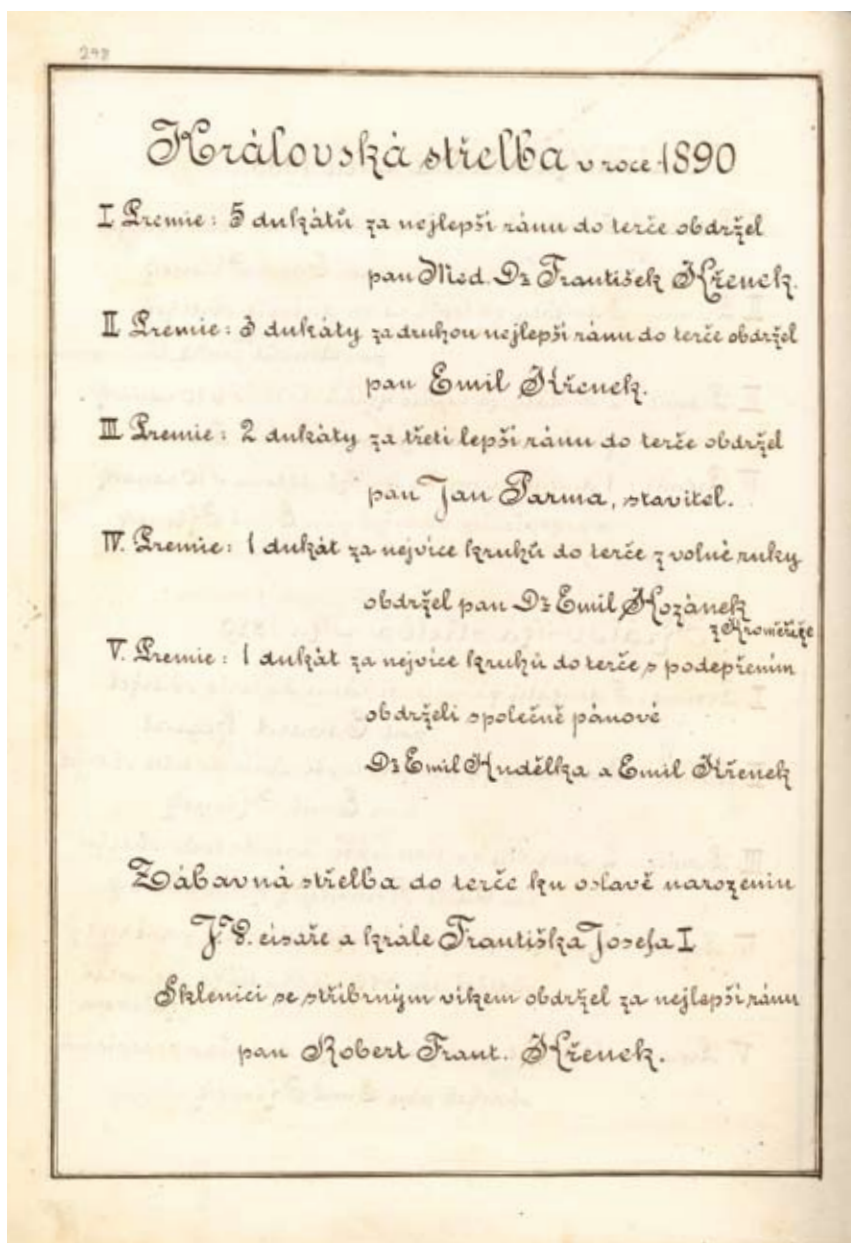 298
Královská střelba v roce 1890
I Premie: 5 dukátů za nejlepší ránu do terče obdržel
pan Med. Dr František Křenek.
II Premie: 3 dukáty za druhou nejlepší ránu do terče obdržel
pan Emil Křenek.
III Premie: 2 dukáty za třetí lepší ránu do terče obdržel
pan Jan Parma, stavitel.
IV. Premie: 1 dukát za nejvíce kruhů do terče z volné ruky
obdržel pan Dr Emil Kozánek
z Kroměříže
V. Premie: 1 dukát za nejvíce kruhů do terče s podepřením
obdrželi společně pánové
Dr Emil Kudělka a Emil Křenek
Zábavná střelba do terče ku oslavě narozenin
J. V. císaře a krále Františka Josefa I
Sklenici se stříbrným víkem obdržel za nejlepší ránu
pan Robert Frant. Křenek.